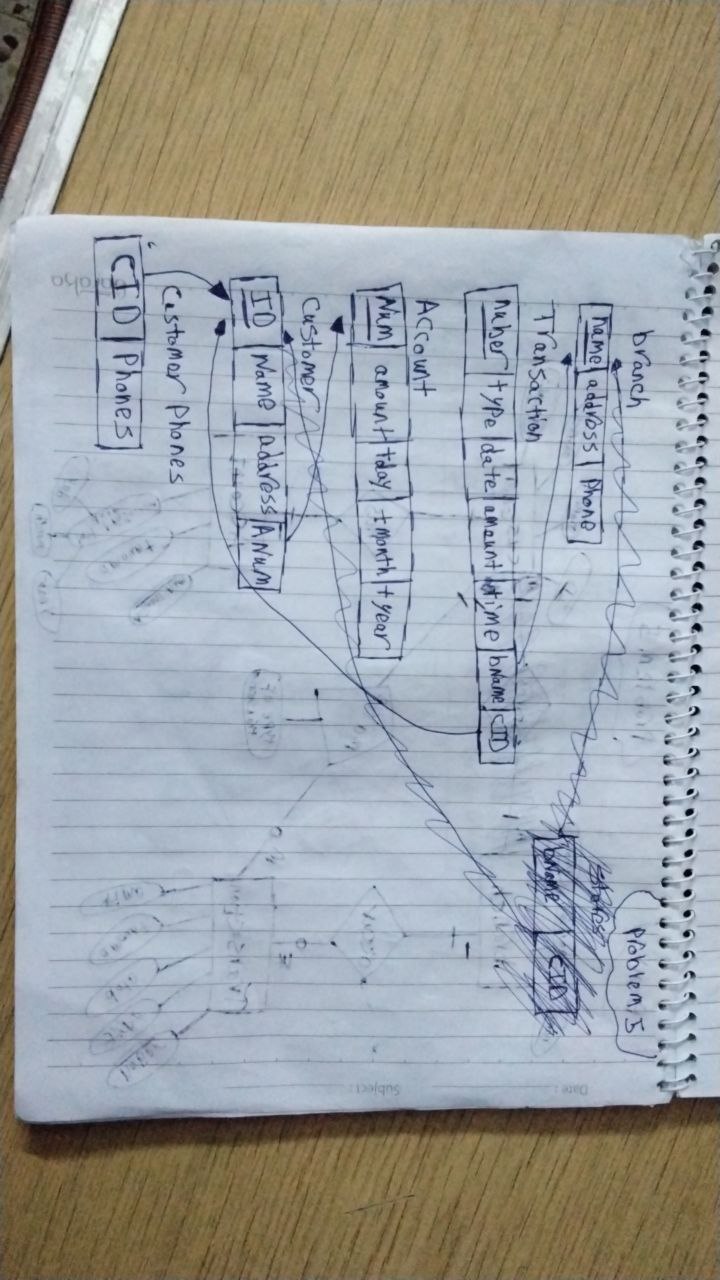 Problem 5
branch
name address Phone
bName CID
Transaction
nuber type date amount time bName CID
Account
Num amount tday tmonth tyear
Customer
ID Name address ANum
Customer Phones
CID Phones
Date:
Subject: